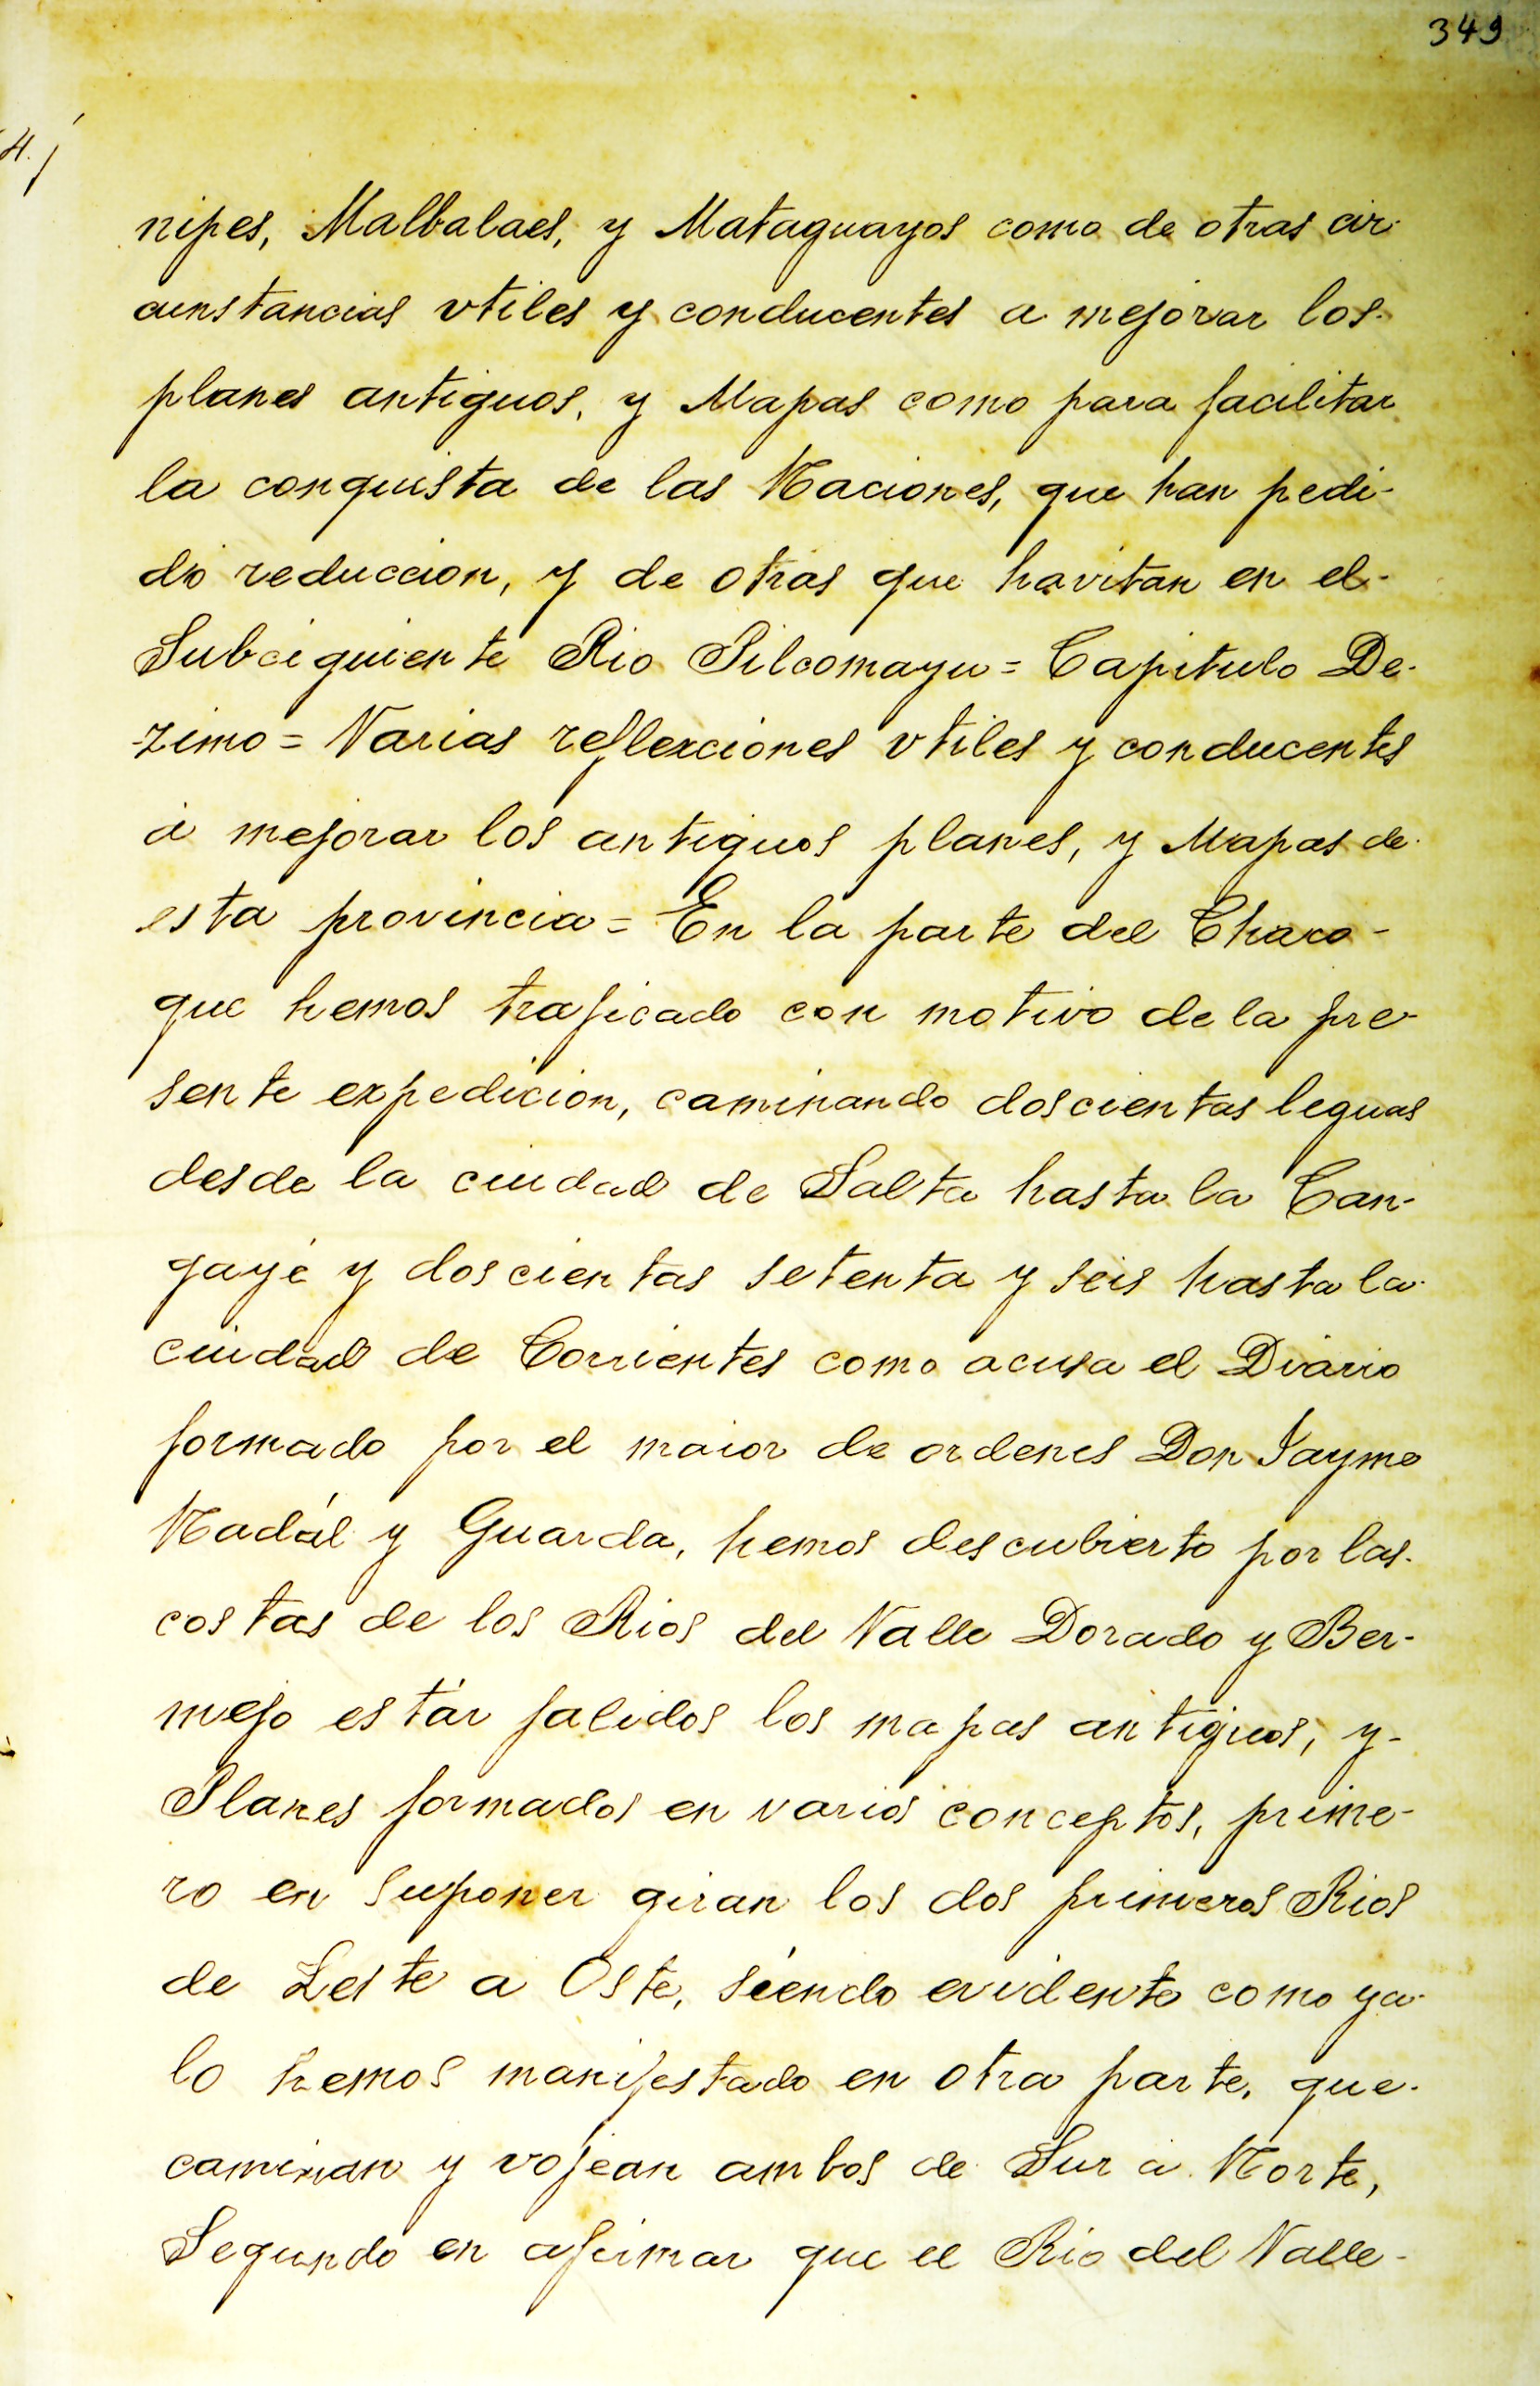 349
nipes, Malbalaes, y Mataguayos como de otras cir-
cunstancias vtiles y conducentes a mejorar los-
planes antiguos, y Mapas como para facilitar
la conquista de las Naciones, que han pedi-
do reduccion, y de otras que havitan en el-
Subciguiente Rio Pilcomayu = Capitulo De-
zimo = Varias reflexciones vtiles y conducentes
á mejorar los antiguos planes, y Mapas de-
esta provincia = En la parte del Chaco-
que hemos traficado con motivo de la pre-
sente expedicion, caminando doscientas leguas
desde la ciudad de Salta hasta la Can-
gayé y doscientas setenta y seis hasta la-
ciudad de Corrientes como acusa el Diario
formado por el maior de ordenes Don Jayme
Nadál y Guarda, hemos descubierto por las-
costas de los Rios del Valle Dorado y Ber-
mejo estár falidos los mapas antiguos, y-
Planes formados en varios conceptos, prime-
ro en suponer giran los dos primeros Rios
de Leste a Oste, siendo evidente como ya-
lo hemos manifestado en otra parte, que-
caminan y vojean ambos de Sur á Norte,
Segundo en afirmar que el Rio del Valle-